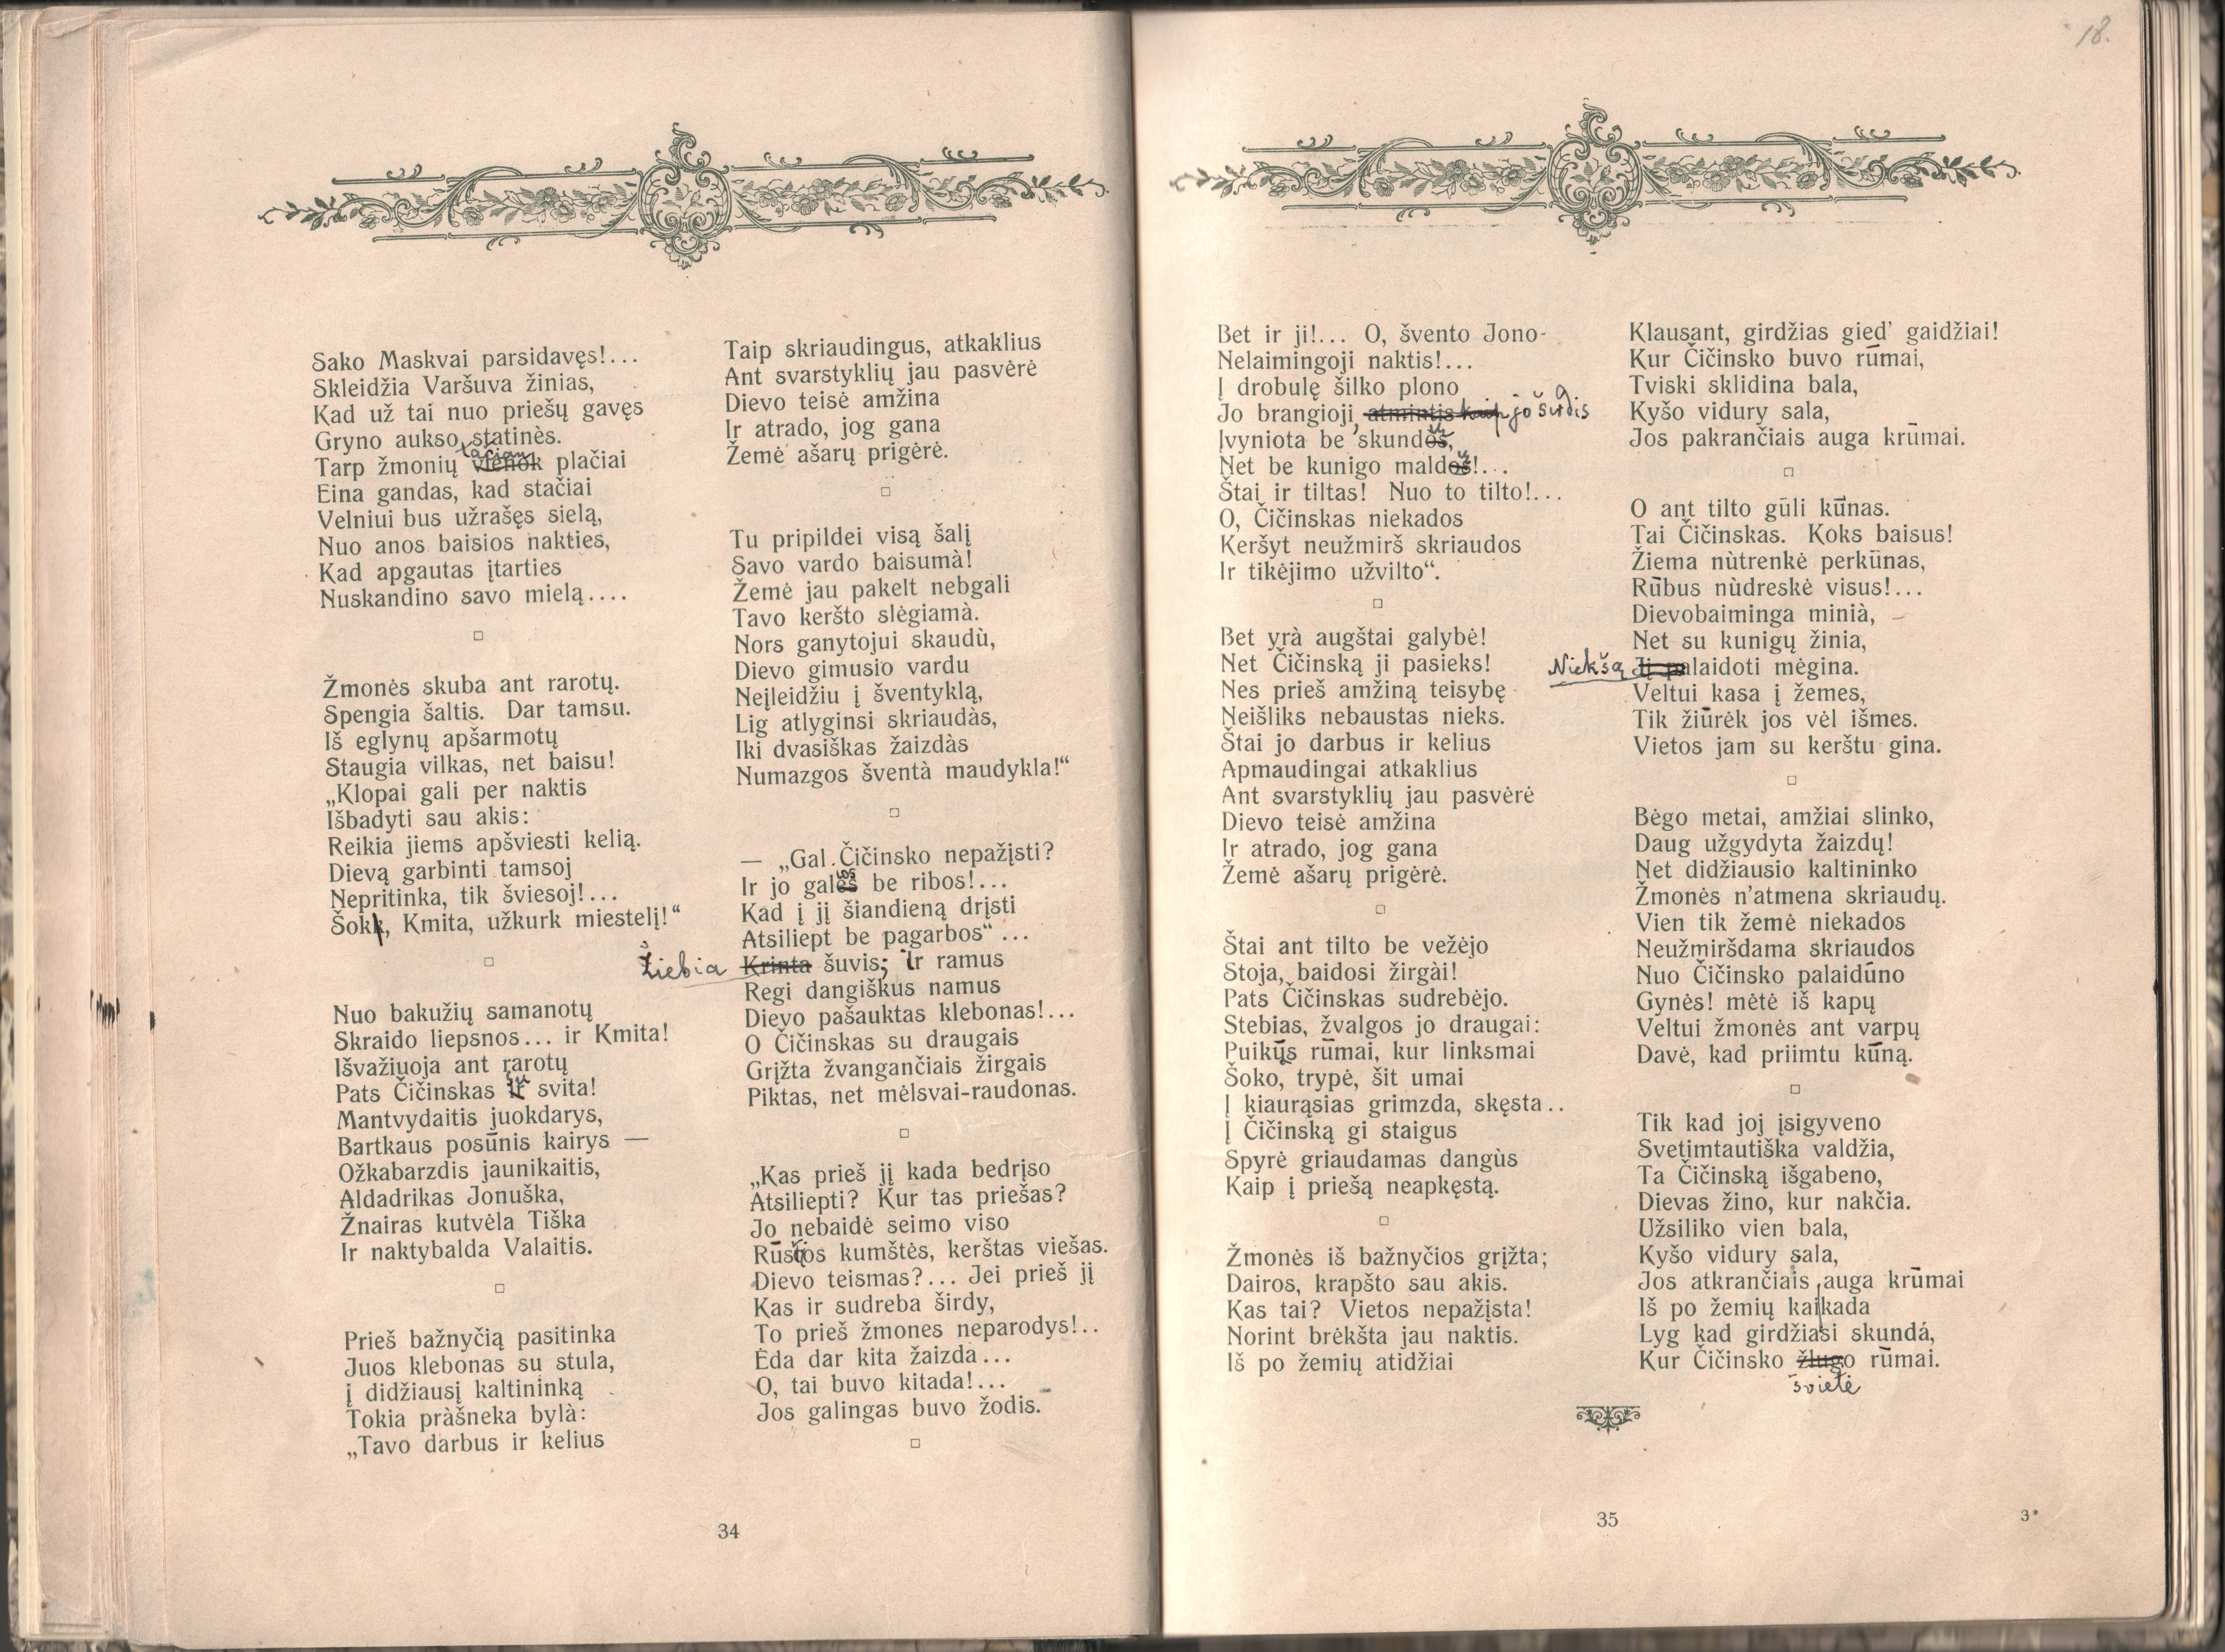 18.
Sako Maskvai parsidavęs!...
Skleidžia Varšuva žinias,
Kad už tai nuo priešų gavęs
Gryno aukso statinės.
tačiau
Tarp žmonių vienok plačiai
Eina gandas, kad stačiai
Velniui bus užrašęs sielą,
Nuo anos baisios nakties,
Kad apgautas įtarties
Nuskandino savo mielą....
Žmonės skuba ant rarotų.
Spengia šaltis. Dar tamsu.
Iš eglynų apšarmotų
Staugia vilkas, net baisu!
„Klopai gali per naktis
Išbadyti sau akis:
Reikia jiems apšviesti kelią.
Dievą garbinti tamsoj
Nepritinka, tik šviesoj!...
Šokk, Kmita, užkurk miestelį!“
Nuo bakužių samanotų
Skraido liepsnos... ir Kmita!
Išvažiuoja ant rarotų
Pats Čičinskas ir svita!
Mantvydaitis juokdarys,
Bartkaus posūnis kairys —
Ožkabarzdis jaunikaitis,
Aldadrikas Jonuška,
Žnairas kutvėla Tiška
Ir naktybalda Valaitis.
Prieš bažnyčią pasitinka
Juos klebonas su stula,
Į didžiausį kaltininką
Tokia pràšneka bylà:
„Tavo darbus ir kelius
Taip skriaudingus, atkaklius
Ant svarstyklių jau pasvėrė
Dievo teisė amžina
Ir atrado, jog gana
Žemė ašarų prigėrė.
Tu pripildei visą šalį
Savo vardo baisumà!
Žemė jau pakelt nebgali
Tavo keršto slėgiamà.
Nors ganytojui skaudù,
Dievo gimusio vardu
Neįleidžiu į šventyklą,
Lig atlyginsi skriaudàs,
Iki dvasiškas žaizdàs
Numazgos šventà maudykla!“
— „Gal Čičinsko nepažįsti?
Ir jo galės be ribos!...
Kad į jį šiandieną drįsti
Atsiliept be pagarbos“ ...
Žiebia Krinta šuvis; Ir ramus
Regi dangiškus namus
Dievo pašauktas klebonas!...
O Čičinskas su draugais
Grįžta žvangančiais žirgais
Piktas, net mėlsvai-raudonas.
„Kas prieš jį kada bedrįso
Atsiliepti? Kur tas priešas?
Jo nebaidė seimo viso
Rūsčios kumštės, kerštas viešas.
Dievo teismas?... Jei prieš jį
Kas ir sudreba širdy,
To prieš žmones neparodys!..
Ėda dar kita žaizda...
O, tai buvo kitada!...
Jos galingas buvo žodis.
34
Bet ir ji!... O, švento Jono-
Nelaimingoji naktis!...
Į drobulę šilko plono
Jo brangioji, atmintis kaip jo širdis
Įvyniota be skundos,
Net be kunigo maldos!...
Štai ir tiltas! Nuo to tilto!...
O, Čičinskas niekados
Keršyt neužmirš skriaudos
Ir tikėjimo užvilto“.
Bet yrà augštai galybė!
Net Čičinską ji pasieks!
Nes prieš amžiną teisybę
Neišliks nebaustas nieks.
Štai jo darbus ir kelius
Apmaudingai atkaklius
Ant svarstyklių jau pasvėrė
Dievo teisė amžina
Ir atrado, jog gana
Žemė ašarų prigėrė.
Štai ant tilto be vežėjo
Stoja, baidosi žirgài!
Pats Čičinskas sudrebėjo.
Stebias, žvalgos jo draugai:
Puikūs rūmai, kur linksmai
Šoko, trypė, šit umai
Į kiaurąsias grimzda, skęsta..
Į Čičinską gi staigus
Spyrė griaudamas dangùs
Kaip į priešą neapkęstą.
Žmonės iš bažnyčios grįžta;
Dairos, krapšto sau akis.
Kas tai? Vietos nepažįsta!
Norint brėkšta jau naktis.
Iš po žemių atidžiai
Klausant, girdžias gied’ gaidžiai!
Kur Čičinsko buvo rūmai,
Tviski sklidina bala,
Kyšo vidury sala,
Jos pakrančiais auga krūmai.
O ant tilto gūli kūnas.
Tai Čičinskas. Koks baisus!
Žiema nùtrenkė perkūnas,
Rūbus nùdreskė visus!...
Dievobaiminga minià,
Net su kunigų žinia,
Niekšą Jį palaidoti mėgina.
Veltui kasa į žemes,
Tik žiūrėk jos vėl išmes.
Vietos jam su kerštu gina.
Bėgo metai, amžiai slinko,
Daug užgydyta žaizdų!
Net didžiausio kaltininko
Žmonės n’atmena skriaudų.
Vien tik žemė niekados
Neužmiršdama skriaudos
Nuo Čičinsko palaidūno
Gynės! mėtė iš kapų
Veltui žmonės ant varpų
Davė, kad priimtu kūną.
Tik kad joj įsigyveno
Svetimtautiška valdžia,
Ta Čičinską išgabeno,
Dievas žino, kur nakčia.
Užsiliko vien bala,
Kyšo vidury sala,
Jos atkrančiais auga krūmai
Iš po žemių kaikada
Lyg kad girdžiasi skundá,
Kur Čičinsko žlugo rūmai.
švietė
35
3*